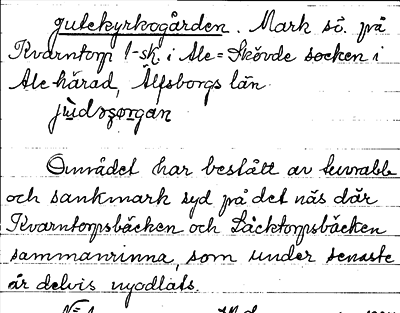 gutekyrkogården. Mark sö. på
Kvarntorp 1-sk. i Ale=Skövde socken i
Ale härad, Älfsborgs län
Området har bestått av
och sankmark syd på det näs där
Kvarntorpsbäcken och Läcktorpsbäcken
sammanrinna, som under senaste
år delvis nyodlats.